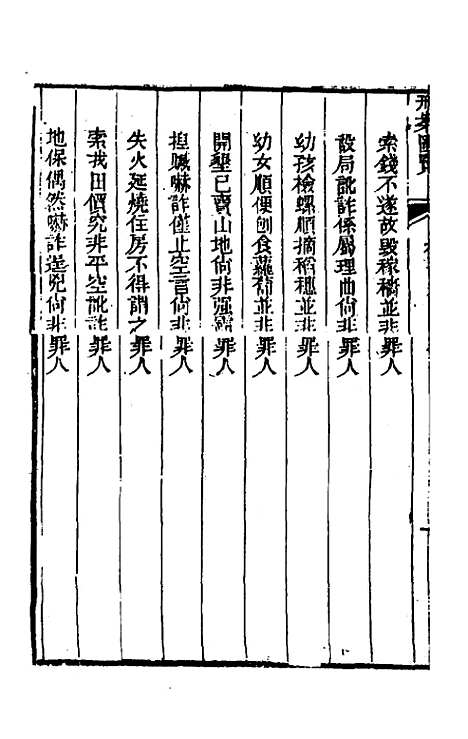 刑案匯覽
索錢不遂故毀稼穡並非罪人
設局訛詐係屬理曲尚非罪人
幼孩檢螺順摘稻穗並非罪人
幼女順便刨食蘿蔔並非罪人
開墾已賣山地尚非强霸罪人
揑贓嚇詐僅止空言尚非罪人
失火延燒住房不得謂之罪人
索找田價究非平空訛詐罪人
地保偶然嚇詐逞兇尚非罪人